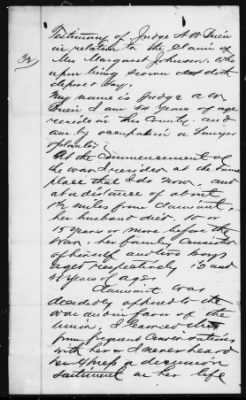 3d
Testimony of Judge A W
in relation to the Claim of
Mrs Margaret Johnson. Who
upon being sworn doth
depose & say.
My name is Judge A W
I am 54 years of age
reside in this County and
am by occupation a Lawyer
& planter
At the Commencement of
the war I resided at the same
place that I do now. and
at a distance of about
miles from claimant,
her husband died 10 or
15 years or more before the
war. her family consisted
of herself and two boys
aged respectively 13 and
years of age.
Claimant was
decidedly opposed to the
war and in favor of the
union, I learned this
from frequent Conversations
with her & I never heard
her express a disunion
sentiment in her life